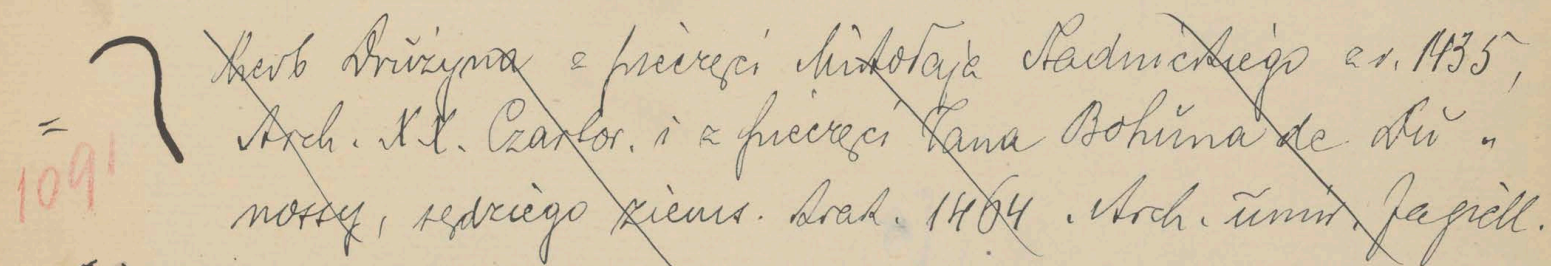 Herb Drużyna z pieczęci Mikołaja Stadnickiego z r. 1435,
= Arch. XX. Czartor. i z pieczęci Jana Bohuna de Du „
1091 nossy, sędziego ziems. krak. 1464. Arch. uniw. Jagiell.